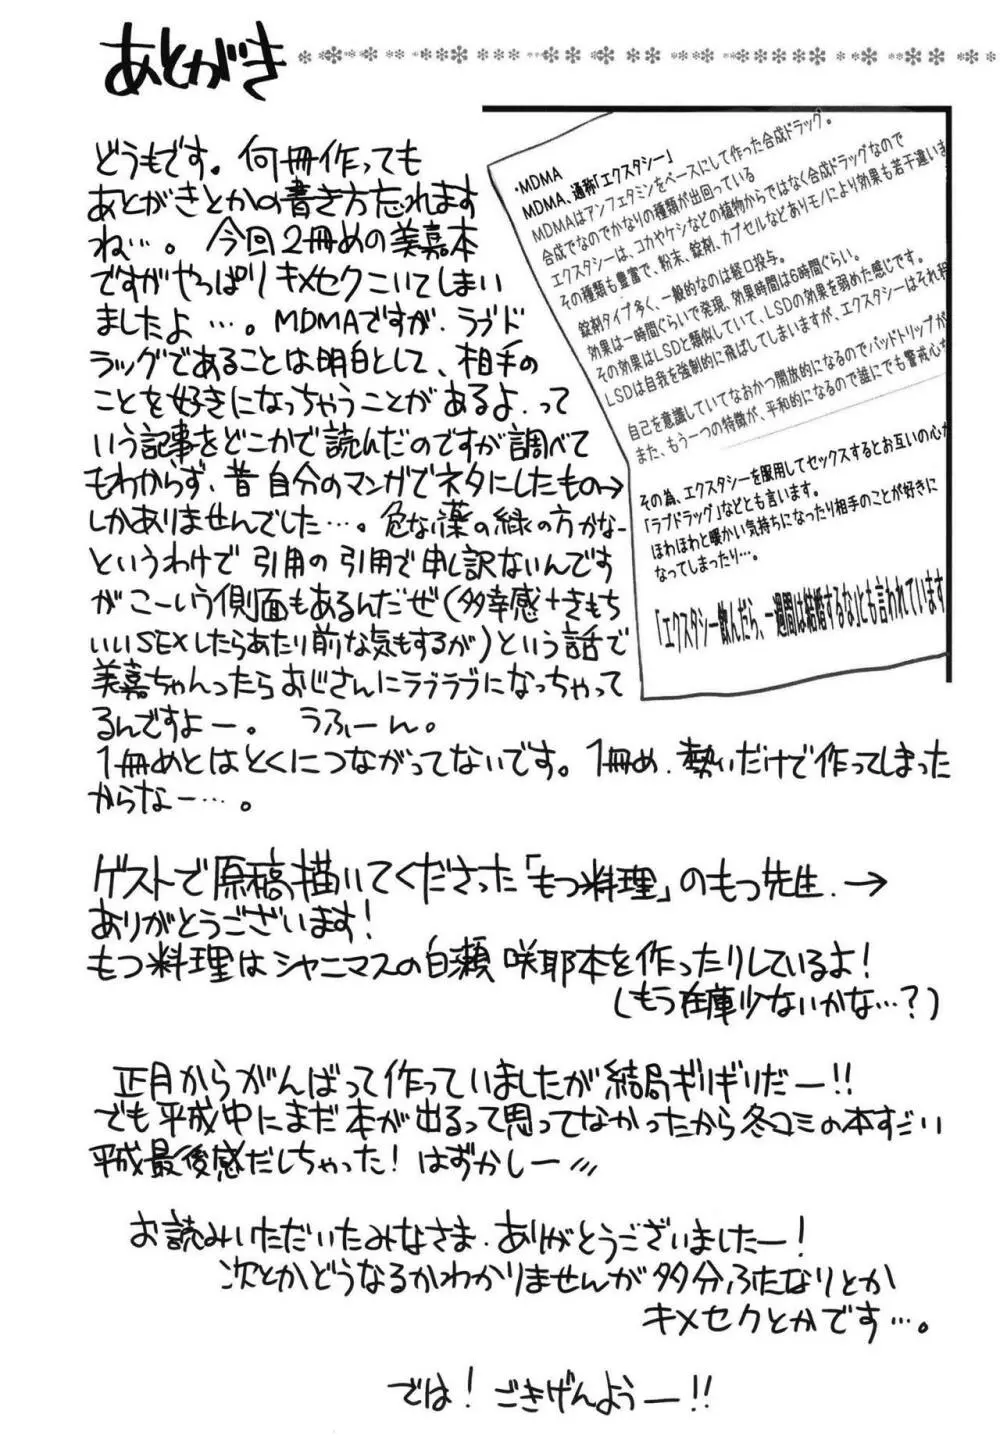 あとがき
どうもです。何冊作っても
あとがきとかの書き方忘れます
ね…。今回2冊めの美嘉本
ですがやっぱりキメセクこいてしまい
ましたよ…。MDMAですが、ラブド
ラッグであることは明白として、相手の
ことを好きになっちゃうことがあるよ、って
いう記事をどこかで読んだのですが調べて
もわからず、昔自分のマンガでネタにしたもの→
しかありませんでした…。危な薬の縁の方かな-
というわけで引用の引用で申し訳ないんです
がこーいう側面もあるんだぜ(多幸感+きもち
いいSEXしたらあたり前な気もするが)という話で
美嘉ちゃんったらおじさんにラブラブになっちゃって
るんですよー。うふーん。
1冊めとはとくにつながってないです。1冊め、勢いだけで作ってしまった
からなー…。
・MDMA
MDMA、通称「エクスタシー」
MDMAはアンフェタミンをベースにして作った合成ドラッグ。
合成でなのでかなりの種類が出回っている
エクスタシーは、コカやケシなどの植物からではなく合成ドラッグなので
その種類も豊富で、粉末、錠剤、カプセルなどありモノにより効果も若干違いま
錠剤タイプ多く、一般的なのは経口投与。
効果は一時間ぐらいで発現、効果時間は6時間ぐらい。
その効果はLSDと類似していて、LSDの効果を弱めた感じです。
LSDは自我を強制的に飛ばしてしまいますが、エクスタシーはそれ程
自己を意識していてなおかつ開放的になるのでバッドトリップが
また、もう一つの特徴が、平和的になるので誰にでも警戒心
その為、エクスタシーを服用してセックスするとお互いの心が
「ラブドラッグ」などとも言います。
ほわほわと暖かい気持ちになったり相手のことが好きに
なってしまったり…。
「エクスタシー飲んだら、一週間は結婚するな」とも言われています
ゲストで原稿描いてくださった「もつ料理」のもつ先生、→
ありがとうございます!
もつ料理はシャニマスの白瀬咲耶本を作ったりしているよ!
(もう在庫少ないかな…?)
正月からがんばって作っていましたが結局ギリギリだー!!
でも平成中にまだ本が出るって思ってなかったから冬コミの本すごい
平成最後感だしちゃった!はずかしー
お読みいただいたみなさま、ありがとうございましたー!
次とかどうなるかわかりませんが多分ふたなりとか
キメセクとかです…。
では!ごきげんようー!!